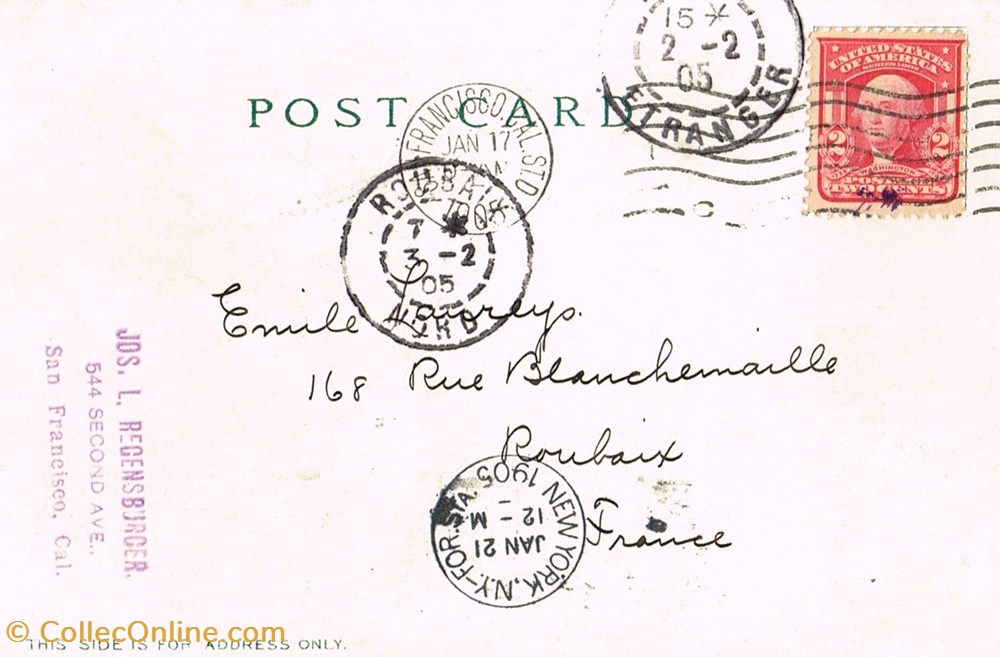 POST CARD
15 *
2 -2
05
ETRANGER
UNITED STATES
OF AMERICA
SERIES 1902
2 WASHINGTON 2
TWO CENTS
FRANCISCO, CAL. STA. D
JAN 17
1905
ROUBAIX
7 *
3 -2
05
NORD
Emile Laureys.
168 Rue Blanchemaille
Roubaix
France
NEW YORK, N.Y.-FOR. STA.
JAN 21
12 - M
1905
JOS. L. REGENSBURGER.
544 SECOND AVE.,
San Francisco, Cal.
THIS SIDE IS FOR ADDRESS ONLY.
© CollecOnline.com